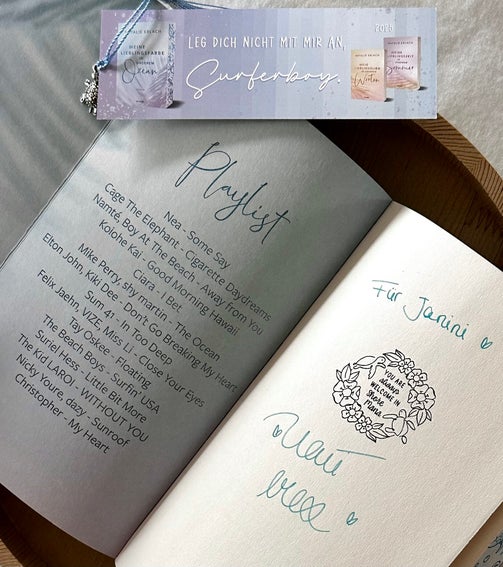 NATALIE ERLACH
MEINE
LIEBLINGSFARBE
Ocean
LEG DICH NICHT MIT MIR AN,
Surferboy.
2025
NATALIE ERLACH
Winter
NATALIE ERLACH
Summer
Playlist
Nea - Some Say
Cage The Elephant - Cigarette Daydreams
Namté, Boy At The Beach - Away from You
Kolohe Kai - Good Morning Hawaii
Ciara - I Bet
Mike Perry, shy martin - The Ocean
Elton John, Kiki Dee - Don't Go Breaking My Heart
Sum 41 - In Too Deep
Felix Jaehn, VIZE, Miss Li - Close Your Eyes
Tay Oskee - Floating
The Beach Boys - Surfin' USA
Surie Hess - Little Bit More
The Kid LAROI - WITHOUT YOU
Nicky Youre, dazy - Sunroof
Christopher - My Heart
Für Janini
YOU ARE
always
WELCOME IN
Shore
Mana